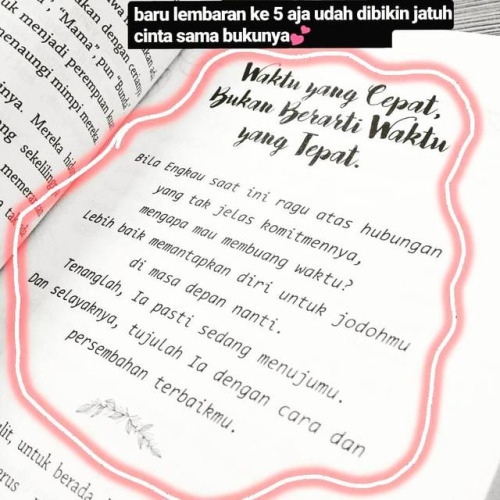 baru lembaran ke 5 aja udah dibikin jatuh
cinta sama bukunya💕
Waktu yang Cepat,
Bukan Berarti Waktu
yang Tepat.
Bila Engkau saat ini ragu atas hubungan
yang tak jelas komitmennya,
mengapa mau membuang waktu?
Lebih baik memantapkan diri untuk jodohmu
di masa depan nanti.
Tenanglah, Ia pasti sedang menujumu.
Dan selayaknya, tujulah Ia dengan cara dan
persembahan terbaikmu.
dengan cerianya
"Mama", pun "Bunda"
uk menjadi perempuan
menaungi mimpi mereka
inya. Mereka
sekeliling
memeran
lit, untuk berada